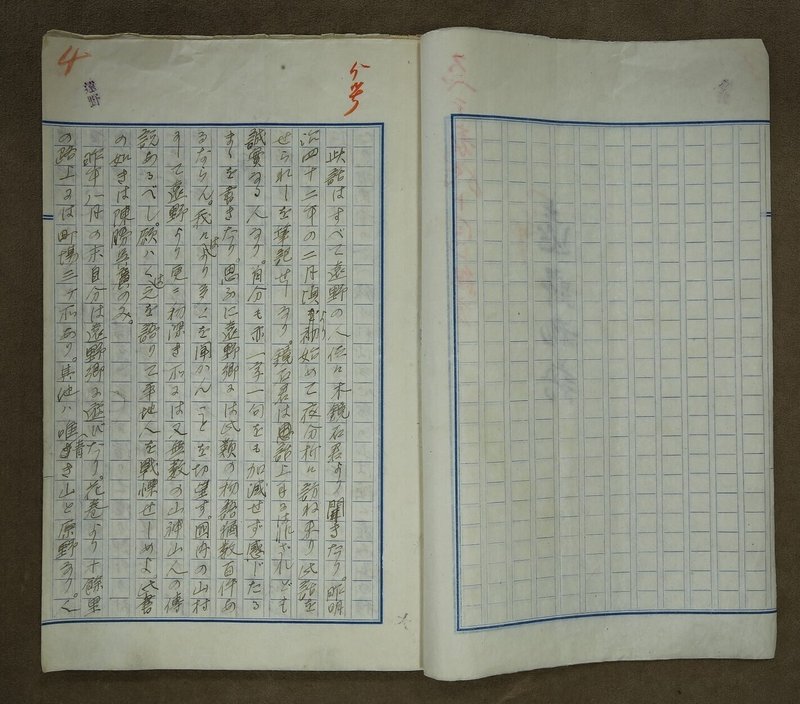 4
遠野
此話はすべて遠野の人佐々木鏡石君より聞きたり。昨明
治四十二年の二月頃より始めて夜分折々訪ね来り此話を
せられしを筆記せしなり。鏡石君は話上手には非ざれども
誠實なる人なり。自分も亦一字一句をも加減せず感じたる
まゝを書きたり。思ふに遠野郷には此類の物語猶数百件あ
るならん。我々はより多くを聞かんことを切望す。國内の山村
にして遠野より更に物深き所には又無数の山神山人の傳
説あるべし。願はくは之を語りて平地人を戦慄せしめよ。此書
の如きは陳勝呉廣のみ。
昨年八月の末自分は遠野郷に遊びたり。花巻より十餘里
の路上には町場三ヶ所あり。其他ハ唯青き山と原野なり。人